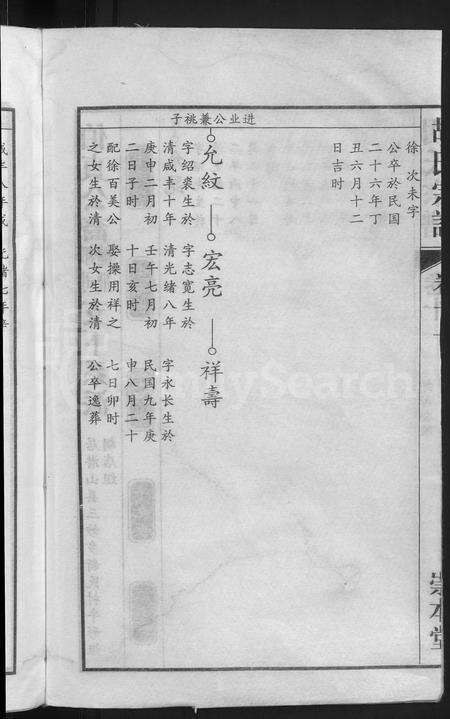 胡氏宗譜
崇本堂
徐 次未字
公卒於民国
二十六年丁
丑六月十二
日吉时
进业公兼祧子
允紋
字绍裘生於
清咸丰十年
庚申二月初
二日子时
配徐百美公
之女生於清
宏亮
字志宽生於
清光绪八年
壬午七月初
十日亥时
娶操用祥之
次女生於清
祥壽
字永长生於
民国九年庚
申八月二十
七日卯时
公卒逸葬